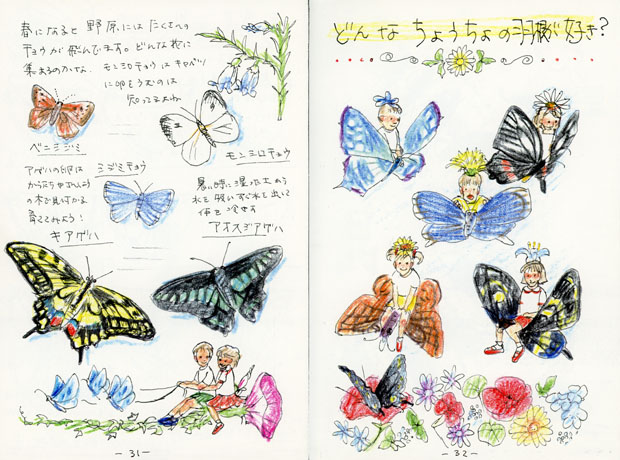 春になると野原にはたくさんの
チョウが飛んでます。どんな花に
集まるのかな、モンシロチョウはキャベツ
に卵をうむのは
知ってるよね
ベニシジミ
シジミチョウ
モンシロチョウ
アゲハの卵は
の木で見つかる
育ててみよう!
キアゲハ
暑い時に湿った土の
水を吸いすぐ水を出して
体を冷やす
アオスジアゲハ
-31-
どんなちょうちょの羽根が好き?
-32-